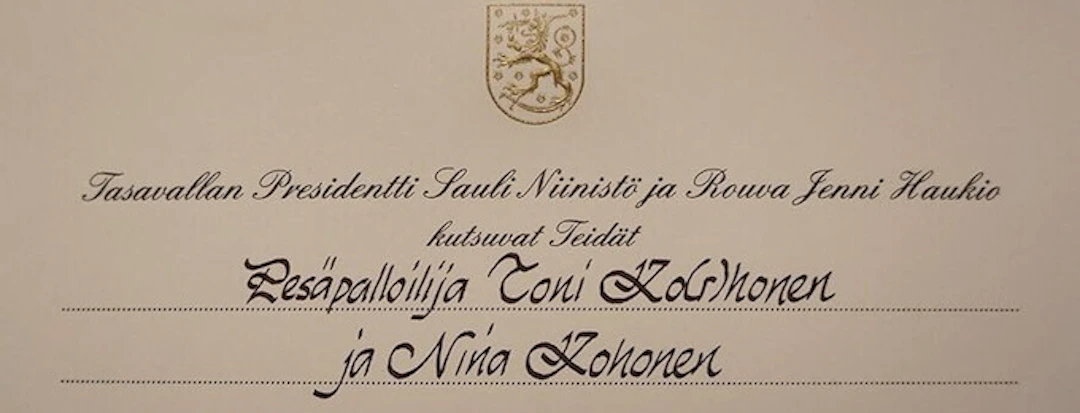 Tasavallan Presidentti Sauli Niinistö ja Rouva Jenni Haukio
kutsuvat Teidät
Pesäpalloilija Toni Ko(r)honen
ja Nina Kohonen